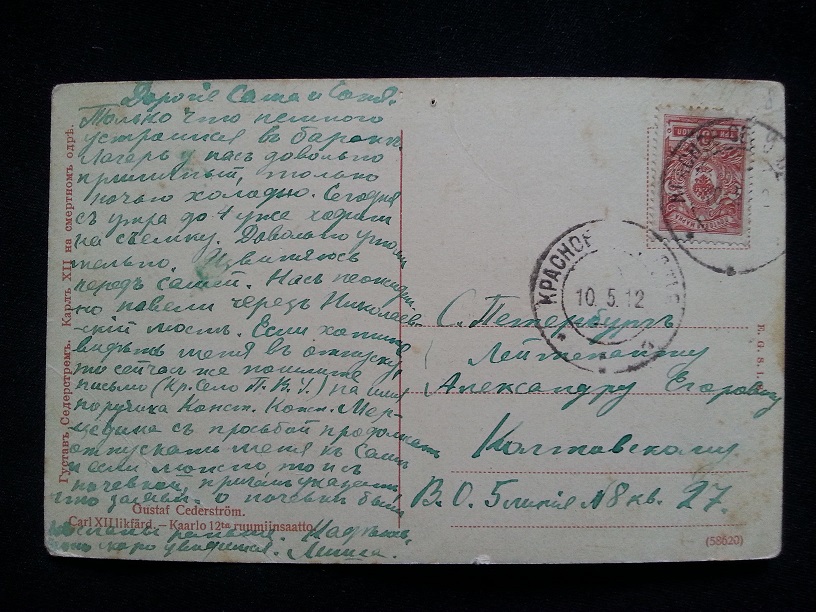 Дорогіе Саша и Соня.
Только что немного
устроился въ баракѣ.
Лагерь у насъ довольно
приличный, только
ночью холодно. Сегодня
съ утра до 1 уже ходили
на съемку. Довольно утоми
тельно. Извиняюсь
передъ Сашей. Насъ неожидан
но повели черезъ Николаев
скій мостъ. Если хотите
видѣть меня въ отпуску,
то сейчас же пошлите
письмо (Кр. Село П. В. У.) на имя
поручика Конст. Конст. Мер-
съ просьбой
отпускать меня къ Вамъ
и если можно, то и съ
ночевкой, причемъ указать
что о ночевкѣ были
раньше. Надѣюсь,
что скоро увидимся. Миша.
Густавъ Седерстремъ. Карлъ XII на смертномъ одрѣ.
Gustaf Cederström.
Carl XII likfärd. — Kaarlo 12ta ruumiinsaatto.
КРАСНОЕ
10.5.12
С. Петербургъ
Лейтенанту
Александру Егоровичу
Колтовскому.
В. О. 5 линія № 8 кв. 27.
E. G. S. i. S.
(58620)